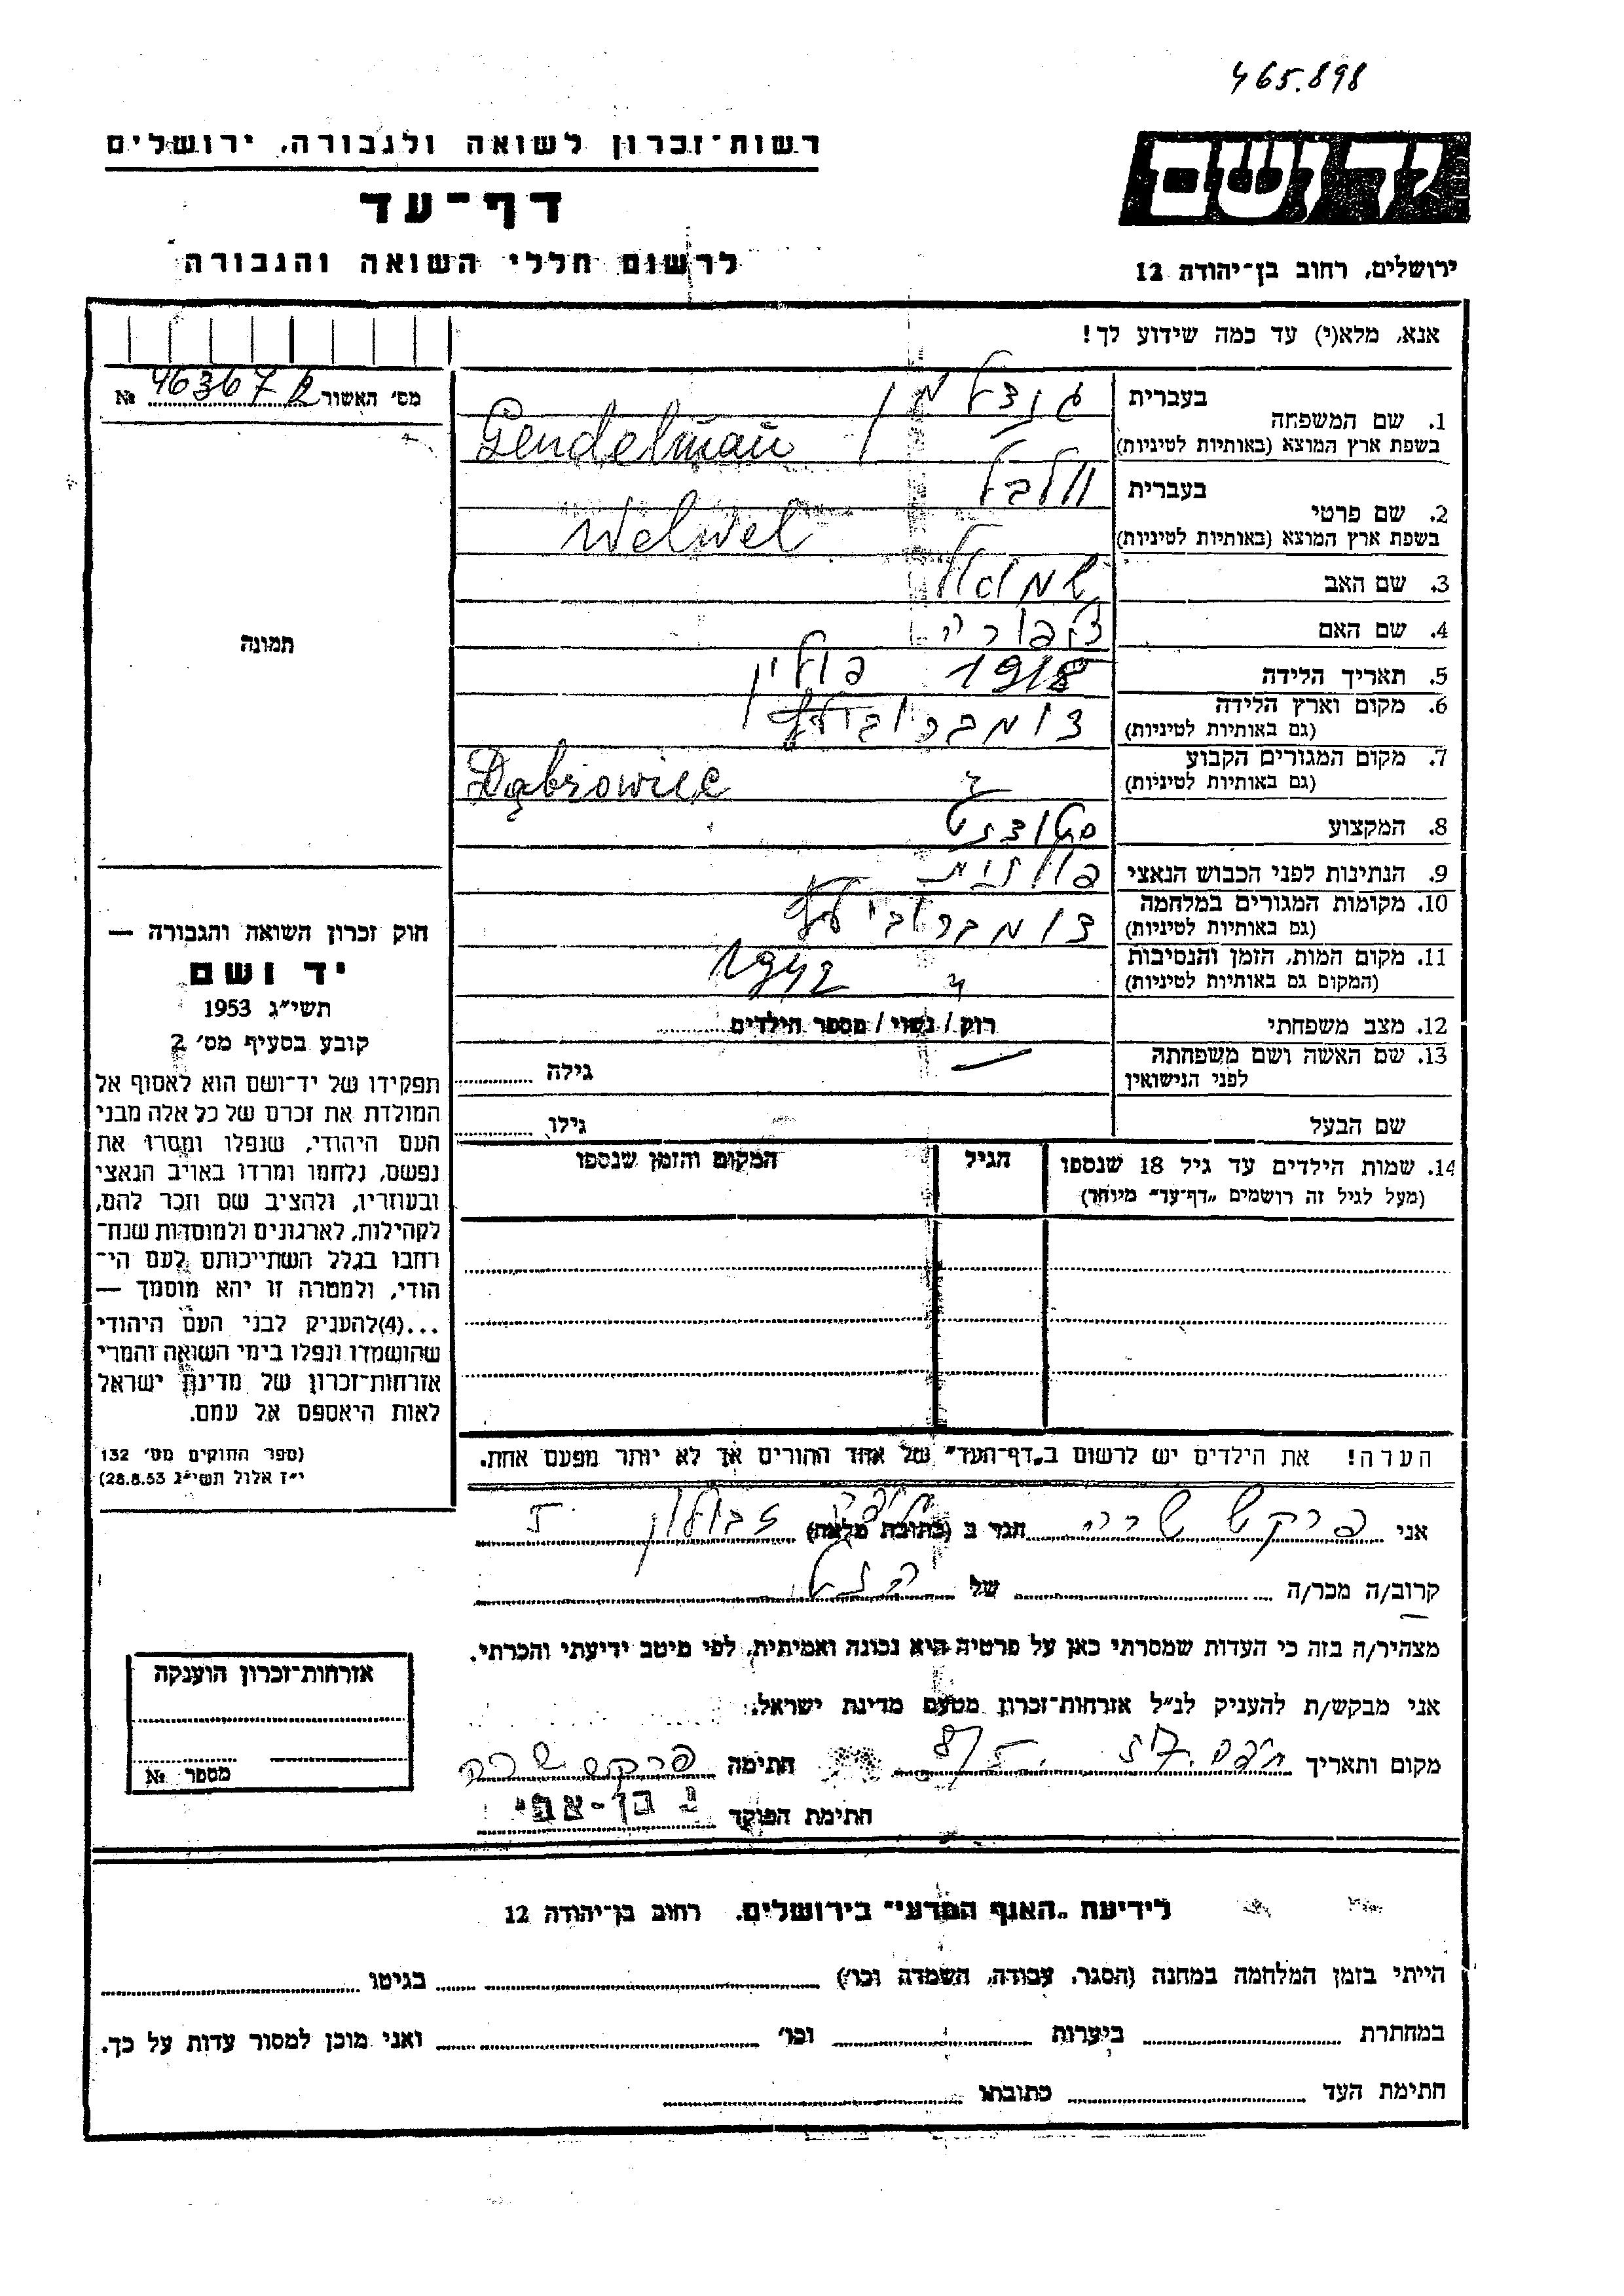 465.898
רשות־זכרון לשואה ולגבורה, ירושלים
יד ושם
דף־עד
לרשום חללי השואה והגבורה
ירושלים, רחוב בן־יהודה 12
אנא, מלא(י) עד כמה שידוע לך!
מס' האשור 46367 №
1. שם המשפחה
בעברית
בשפת ארץ המוצא (באותיות לטיניות) Gendelman
2. שם פרטי
בעברית וולבל
בשפת ארץ המוצא (באותיות לטיניות) Welwel
3. שם האב שמואל
4. שם האם צפורה
5. תאריך הלידה 1918 פולין
6. מקום וארץ הלידה
(גם באותיות לטיניות)
7. מקום המגורים הקבוע
(גם באותיות לטיניות) Dąbrowice
8. המקצוע סטודנט
9. הנתינות לפני הכבוש הנאצי פולנית
10. מקומות המגורים במלחמה
(גם באותיות לטיניות)
11. מקום המות, הזמן והנסיבות 1942
(המקום גם באותיות לטיניות)
12. מצב משפחתי רוק / נשוי / מספר הילדים
13. שם האשה ושם משפחתה
לפני הנישואין גילה
שם הבעל גילו
14. שמות הילדים עד גיל 18 שנספו הגיל המקום והזמן שנספו
(מעל לגיל זה רושמים "דף־עד" מיוחד)
תמונה
חוק זכרון השואה והגבורה —
יד ושם
תשי"ג 1953
קובע בסעיף מס' 2
תפקידו של יד־ושם הוא לאסוף אל
המולדת את זכרם של כל אלה מבני
העם היהודי, שנפלו ומסרו את
נפשם, נלחמו ומרדו באויב הנאצי
ובעוזריו, ולהציב שם וזכר להם,
לקהילות, לארגונים ולמוסדות שנח־
רחבו בגלל השתייכותם לעם הי־
הודי, ולמטרה זו יהא מוסמך —
...(4)להעניק לבני העם היהודי
שהושמדו ונפלו בימי השואה והמרי
אזרחות־זכרון של מדינת ישראל
לאות היאספם אל עמם.
(ספר החוקים מס' 132
י"ז אלול תשי"ג 28.8.53)
הערה! את הילדים יש לרשום ב"דף־העד" של אחד ההורים אך לא יותר מפעם אחת.
אני פרקש שרה הגר ב (כתובת מלאה) זבולון 5
קרוב/ה מכר/ה של
מצהיר/ה בזה כי העדות שמסרתי כאן על פרטיה היא נכונה ואמיתית, לפי מיטב ידיעתי והכרתי.
אני מבקש/ת להעניק לנ"ל אזרחות־זכרון מטעם מדינת ישראל.
מקום ותאריך חתימה פרקש שרה
חתימת הפוקד בן-אפי
אזרחות־זכרון הוענקה
מספר №
לידיעת "האגף המדעי" בירושלים, רחוב בן־יהודה 12
הייתי בזמן המלחמה במחנה (הסגר, עבודה, השמדה וכו') בגיטו
במחתרת ביערות וכו' ואני מוכן למסור עדות על כך.
חתימת העד כתובתו